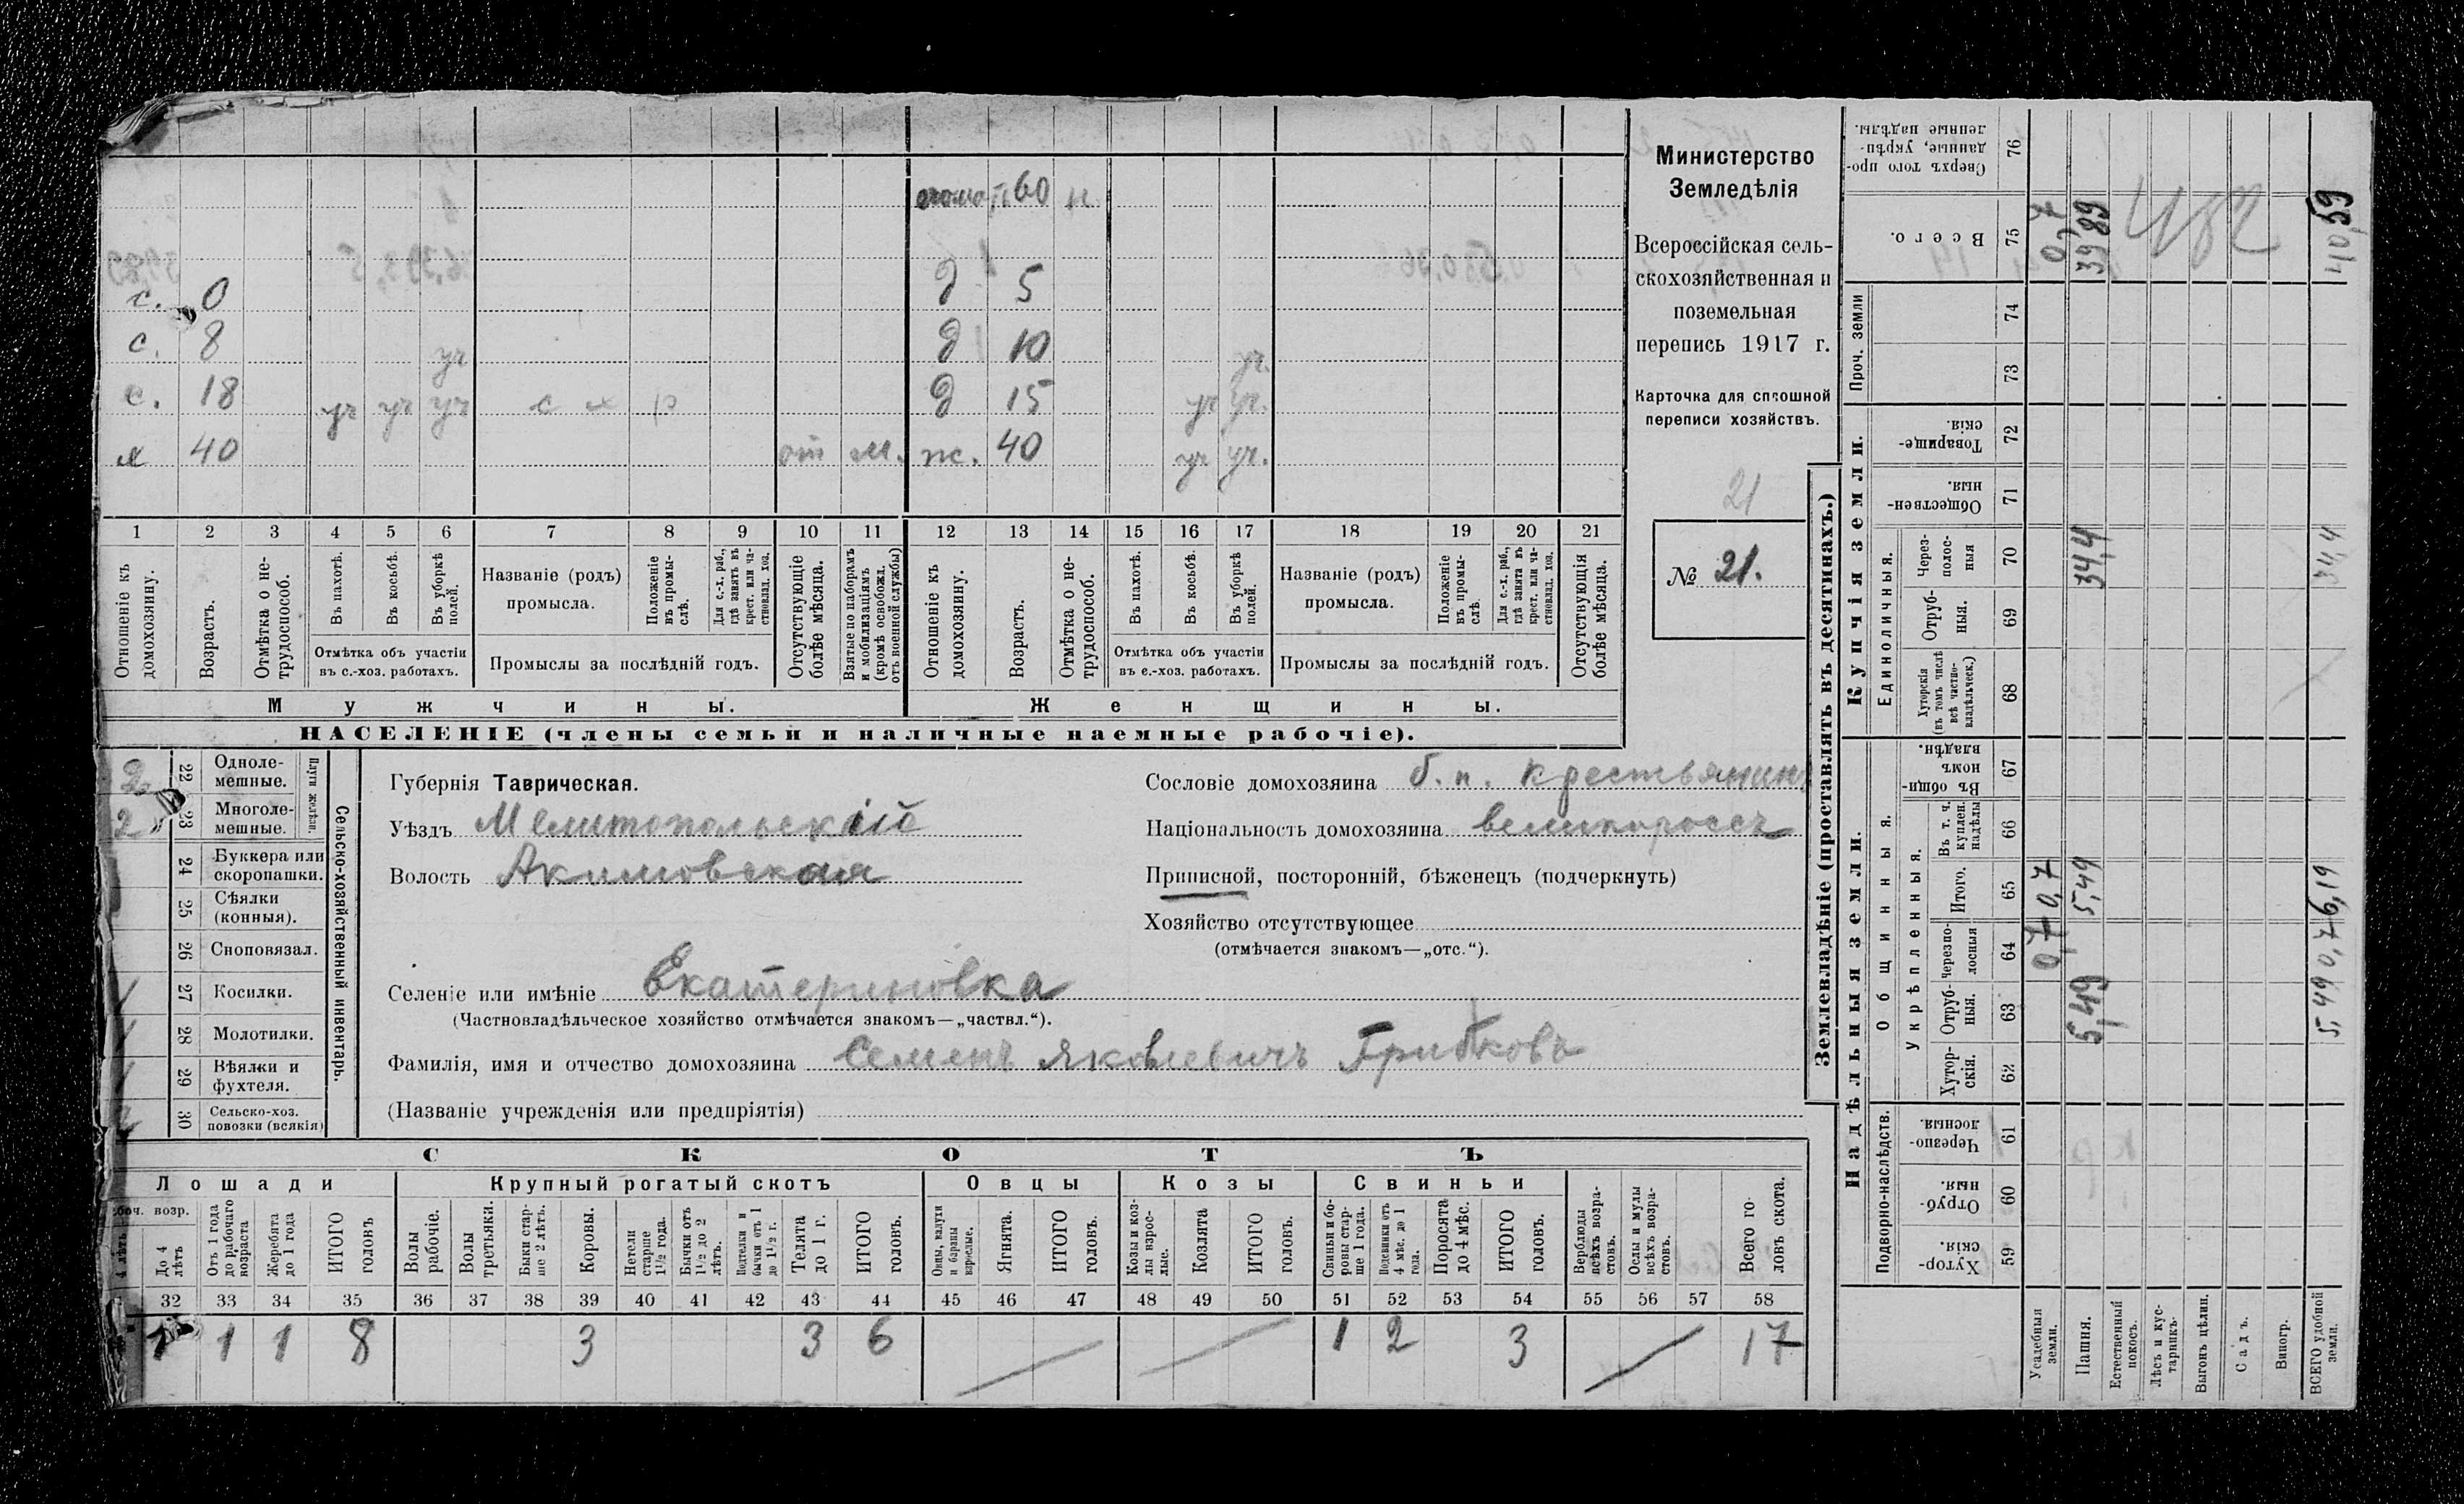 Министерство
Земледѣлія
Всероссійская сель-
скохозяйственная и
поземельная
перепись 1917 г.
Карточка для сплошной
переписи хозяйствъ.
21
№ 21.
60 н.
с. 0 д 5
с. 8 уч д 10 уч.
с. 18 уч уч уч с х р д 15 уч уч.
х 40 от м. ж. 40 уч уч.
1 2 3 4 5 6 7 8 9 10 11 12 13 14 15 16 17 18 19 20 21
Отношеніе къ домохозяину.
Возрастъ.
Отмѣтка о не-трудоспособ.
Въ пахотѣ.
Въ косьбѣ.
Въ уборкѣ полей.
Отмѣтка объ участіи
въ с.-хоз. работахъ.
Названіе (родъ)
промысла.
Положеніе въ промы-слѣ.
Для с.-х. раб., гдѣ занятъ въ крест. или ча-стновлад. хоз.
Промыслы за послѣдній годъ.
Отсутствующіе болѣе мѣсяца.
Взятые по наборамъ и мобилизаціямъ (кромѣ освобожд. отъ военной службы)
Отношеніе къ домохозяину.
Возрастъ.
Отмѣтка о не-трудоспособ.
Въ пахотѣ.
Въ косьбѣ.
Въ уборкѣ полей.
Отмѣтка объ участіи
въ с.-хоз. работахъ.
Названіе (родъ)
промысла.
Положеніе въ промы-слѣ.
Для с.-х. раб., гдѣ занята въ крест. или ча-стновлад. хоз.
Промыслы за послѣдній годъ.
Отсутствующія болѣе мѣсяца.
Мужчины. Женщины.
НАСЕЛЕНІЕ (члены семьи и наличные наемные рабочіе).
2 22 Одноле-мешные.
2 23 Многоле-мешные.
Плуги желѣзн.
24 Буккера или скоропашки.
25 Сѣялки (конныя).
26 Сноповязал.
27 Косилки.
28 Молотилки.
29 Вѣялки и фухтеля.
30 Сельско-хоз. повозки (всякія)
Сельско-хозяйственный инвентарь.
Губернія Таврическая.
Уѣздъ Мелитопольскій
Волость Акимовская
Сословіе домохозяина б. п. крестьянинъ
Національность домохозяина великороссъ
Приписной, посторонній, бѣженецъ (подчеркнуть)
Хозяйство отсутствующее
(отмѣчается знакомъ—„отс.“).
Селеніе или имѣніе Екатериновка
(Частновладѣльческое хозяйство отмѣчается знакомъ—„частвл.“).
Фамилія, имя и отчество домохозяина Семенъ Яковлевичъ Грибковъ
(Названіе учрежденія или предпріятія)
СКОТЪ
Лошади Крупный рогатый скотъ Овцы Козы Свиньи
До 4 лѣтъ
Отъ 1 года до рабочаго возраста
Жеребята до 1 года
ИТОГО головъ
Волы рабочіе.
Волы третьяки.
Быки стар-ше 2 лѣтъ.
Коровы.
Нетели старше 1½ года.
Бычки отъ 1½ до 2 лѣтъ.
Подтелки и бычки отъ 1 до 1½ г.
Телята до 1 г.
ИТОГО головъ.
Овцы, валухи и бараны взрослые.
Ягнята.
ИТОГО головъ.
Козы и коз-лы взрос-лые.
Козлята
ИТОГО головъ.
Свиньи и бо-ровы стар-ше 1 года.
Подсвинки отъ 4 мѣс. до 1 года.
Поросята до 4 мѣс.
ИТОГО головъ.
Верблюды всѣхъ возра-стовъ.
Ослы и мулы всѣхъ возра-стовъ.
Всего го-ловъ скота.
32 33 34 35 36 37 38 39 40 41 42 43 44 45 46 47 48 49 50 51 52 53 54 55 56 57 58
1 1 1 8 3 3 6 1 2 3 17
Землевладѣніе (проставлять въ десятинахъ.)
Надѣльныя земли. Купчія земли. Проч. земли
Подворно-наслѣдств.
Общинныя.
Укрѣпленныя.
Единоличныя.
Хутор-скія. 59
Отруб-ныя. 60
Черезпо-лосныя. 61
Хутор-скія. 62
Отруб-ныя. 63
Черезпо-лосныя 64
Итого. 65
Въ т. ч. куплен. надѣлы 66
Въ общи-номъ владѣн. 67
Хуторскія (въ томъ числѣ всѣ частно-владѣльческ.) 68
Отруб-ныя. 69
Через-полос-ныя 70
Обществен-ныя. 71
Товарище-скія. 72
73
74
Всего. 75
Сверхъ того про-данные, укрѣп-ленные надѣлы. 76
Усадебныя земли. 0,7 0,7 0,7
Пашня. 5,49 5,49 34,4 39,89
Естественный покосъ.
Лѣсъ и кус-тарникъ.
Выгонъ цѣлин.
Садъ.
Виногр.
ВСЕГО удобной земли. 5,49 0,7 6,19 34,4 40,59
482